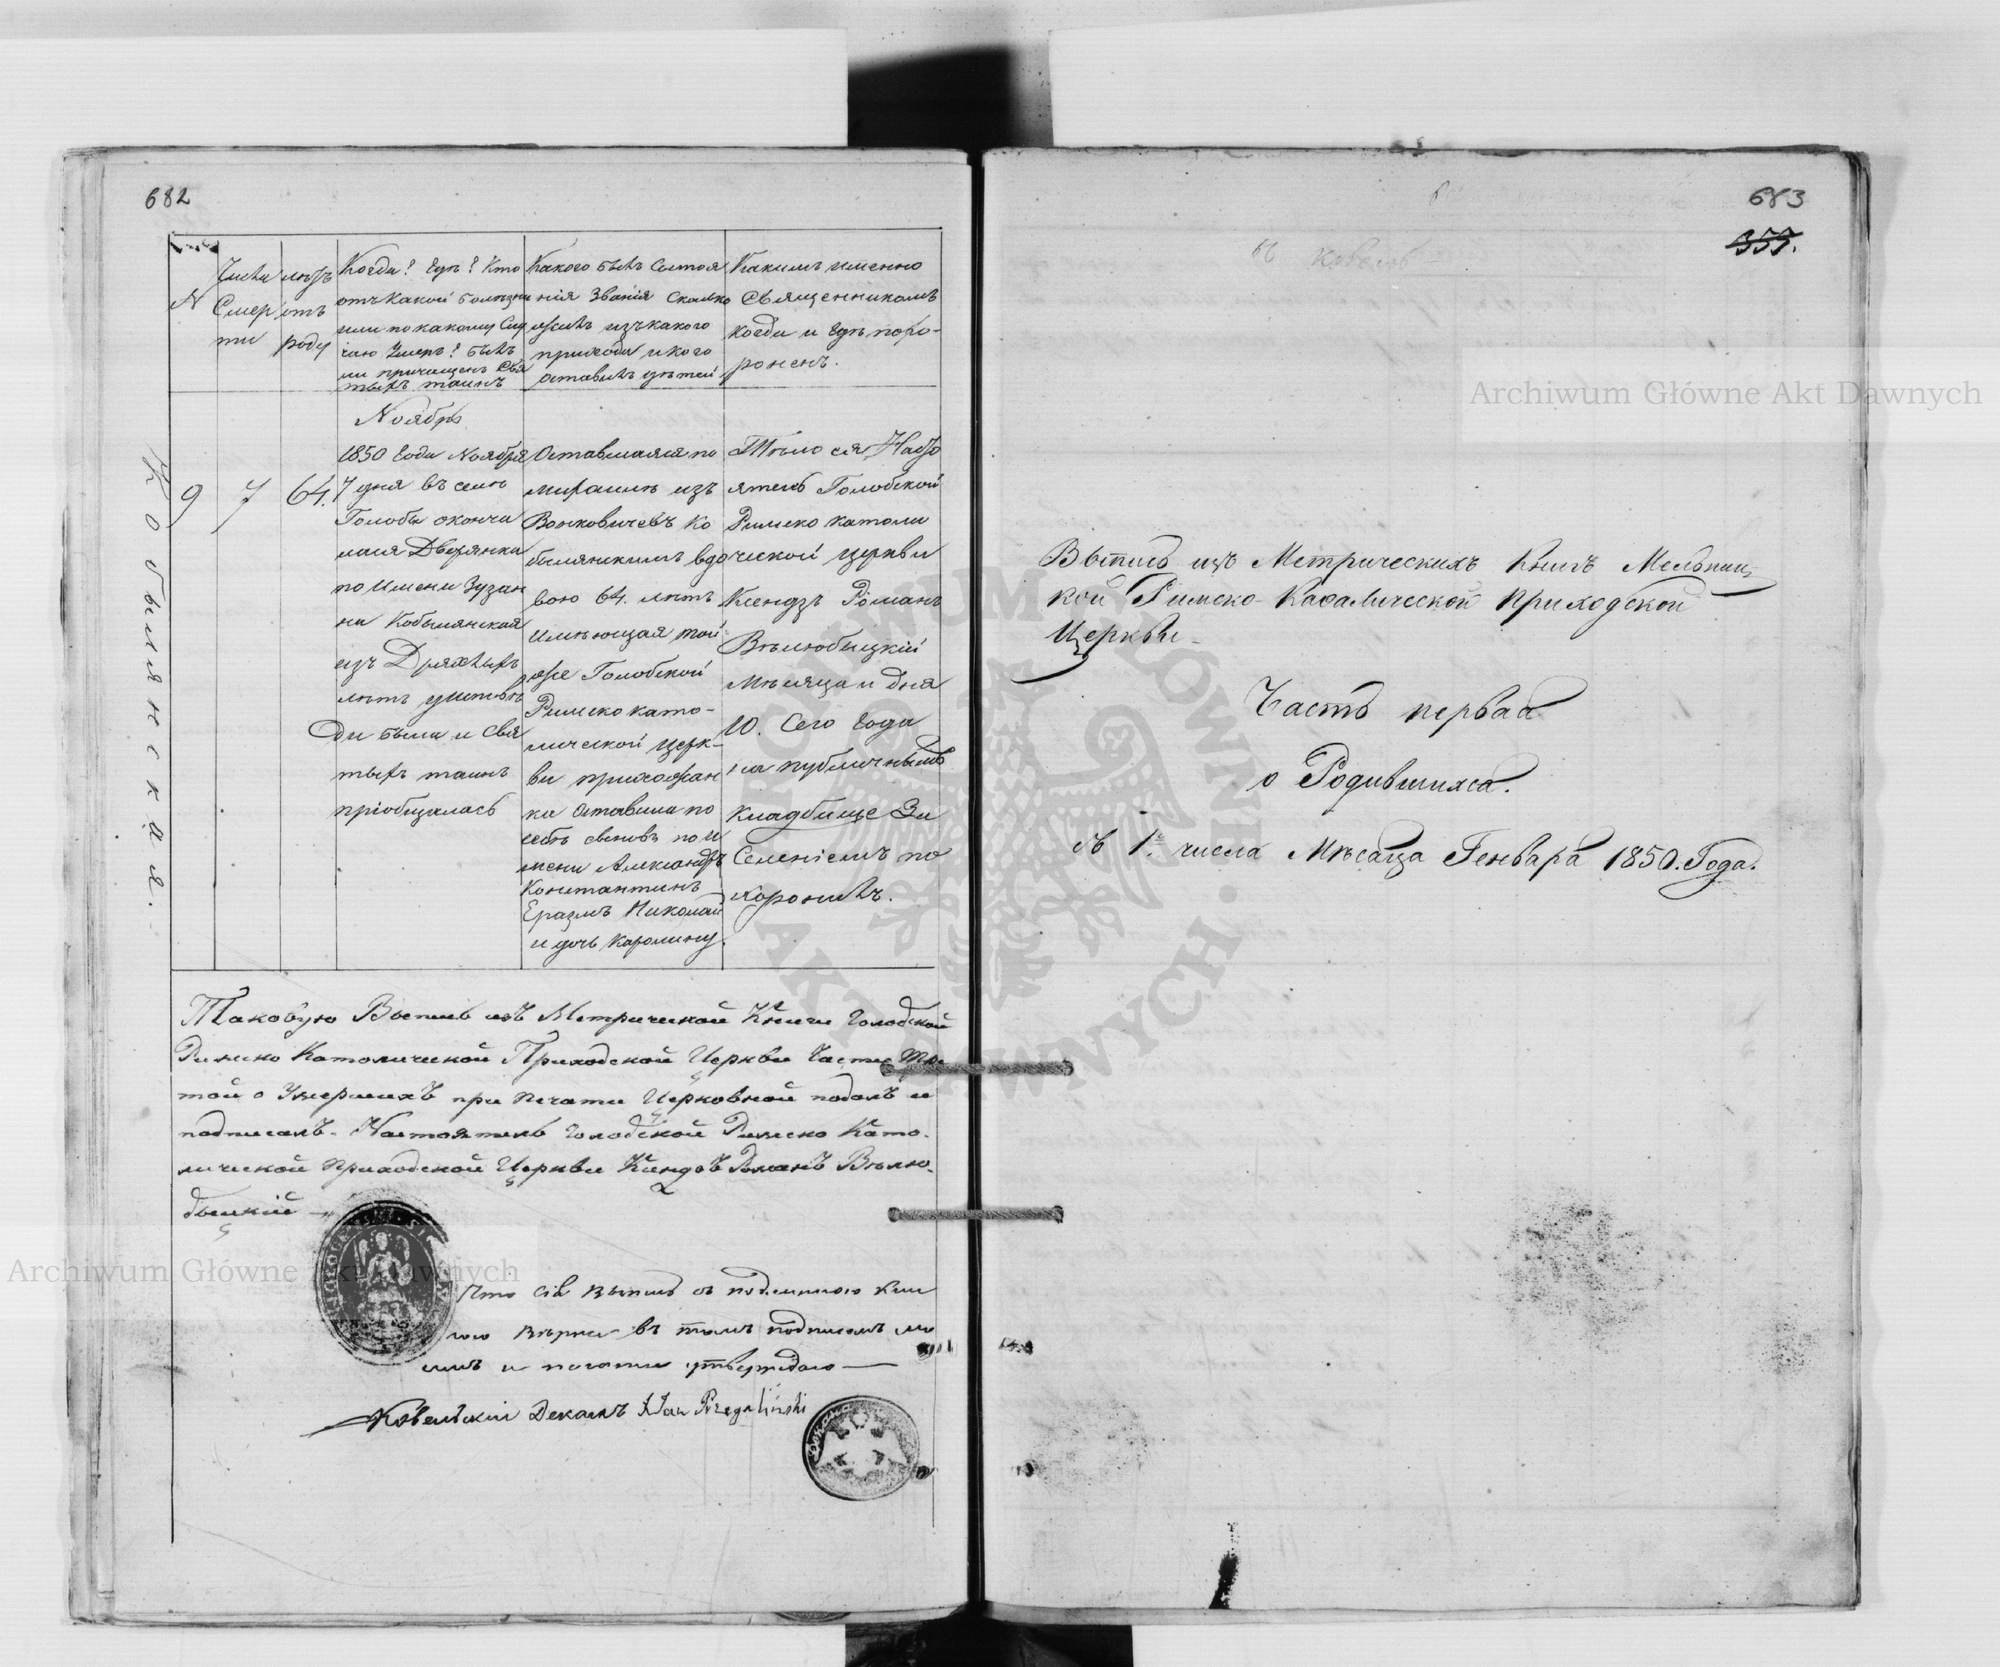 682
N
Числа
Смер
ти
лѣтъ
отъ
роду
Когда? Гдѣ? Кто
отъ какой болѣзни
или по какому слу
чаю Умеръ? былъ
ли причащенъ Свя
тыхъ таинъ
Какого былъ Состоя
нія Званія Сколько
жилъ изъ какого
прихода и кого
оставилъ дѣтей
Какимъ именно
Священникомъ
когда и гдѣ похо-
роненъ.
Кобылянская.
9
7
64.
Ноябрь
1850 Года Ноября
7 дня въ селѣ
Голобы сконча
лася Дворянка
по Имени Зузан
на Кобылянская
изъ Дряхлыхъ
лѣтъ
ди была и Свя
тыхъ таинъ
пріобщалась
Оставшаяся по
изъ
Вонковичевъ Ко
былянскимъ вдо
вою 64. лѣтъ
Имѣющая той
же Голобской
Римско като-
лической церк-
ви прихожан
ка Оставила по
себѣ сыновъ по и
мени Александръ
Константинъ
Еразмъ Николай
и дочь Каролину.
Тѣло сія Насто
ятель Голобской
Римско католи
ческой церкви
Ксендзъ Романъ
Вѣлюбыцкій
Мѣсяца и дня
10. Сего Года
на публичномъ
кладбище За
Селеніемъ по
хоронилъ.
Таковую Выпись изъ Метрической Книги Голобской
Римско Католической Приходской Церкви Части Тре
той о Умершихъ при печати Церковной подалъ и
подписалъ. Настоятель Голобской Римско Като-
лической Приходской Церкви Ксендзъ Романъ Вѣлю-
быцкій
Что сія Выпись съ подлинною кни
гою Вѣрна въ томъ подписомъ мо
имъ и печатью утверждаю
Ковельскій Деканъ X Jan Przegaliński
683
353.
Ковель
Выпись изъ Метрическихъ Книгъ Мельниц-
кой Римско-Каѳалической Приходской
Церкви
Часть первая
о Родившихся.
съ 1го числа Мѣсяца Генваря 1850. Года.
Archiwum Główne Akt Dawnych
Archiwum Główne Akt Dawnych
ARCHIWUM GŁÓWNE AKT DAWNYCH